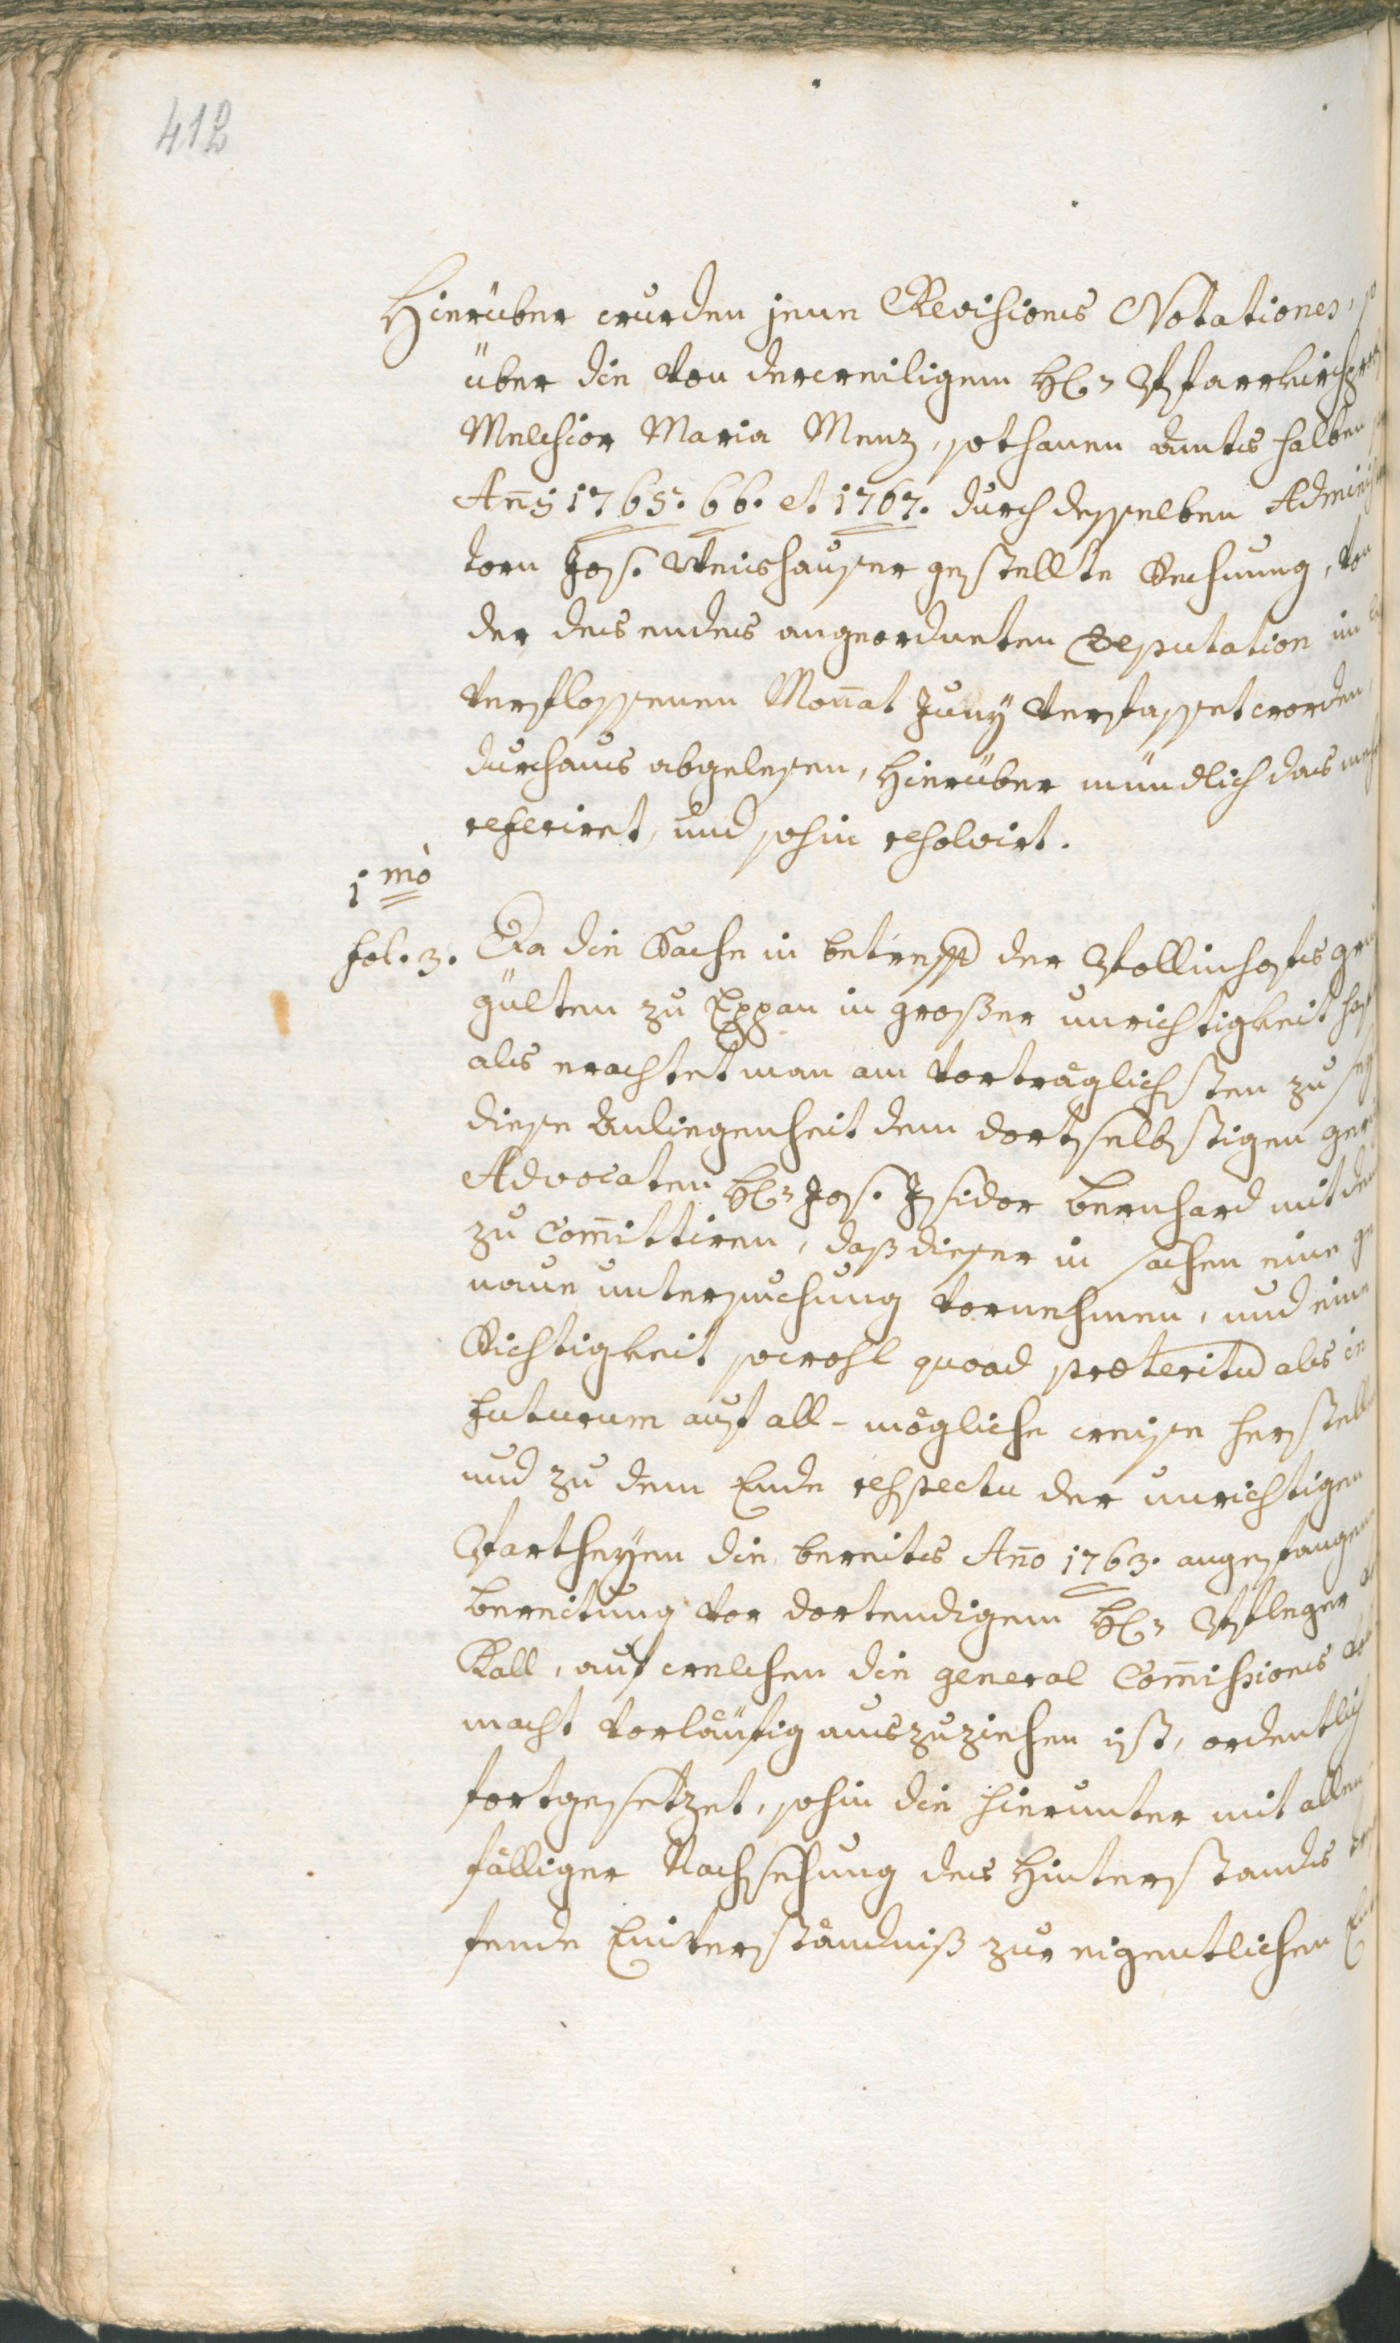 412
Hierüber wurden jene Revisions Notationes, so
über die von derweiligem H: Pfarrkirchpro
Melchior Maria Menz, sothanen Amts halben
Anis 1765. 66. et 1767. durch desselben Adminis
torn Jos. Weishauser gestellte Rechnung, von
der des endes angeordneten Deputation im
verflossenen Monat Juny verfasset worden,
durchaus abgelesen, hierüber mündlich das meh
referiret, und sohin resolvirt.
1 mò
fol. 3. Da die Sache in betreff der Stollinhofs gru
gülten zu Eppan in großer unrichtigkeit haft
als erachtet man am vorträglichsten zu sey
diese Anliegenheit dem dortselbstigen ger
Advocaten H: Jos. Isidor bernhard mit dem
zu Comittiren, daß dieser in sachen eine ge
naue untersuchung vornehmen, und eine
Richtigkeit sowohl quoad præteritu als in
futurum auf all-mögliche weise herstelle
und zu dem Ende respectu der unrichtigen
Partheyen die bereits Ano 1763. angefangene
bereitung vor dortendigem H: Pfleger
Rall, auf welchen die general Comissions
macht vorläufig auszuziehen ist, ordentlich
fortgesetzet, sohin die hierunter mit allen
fälliger Nachsehung des Hinterstandes
fende Einverständniß zur eigentlichen